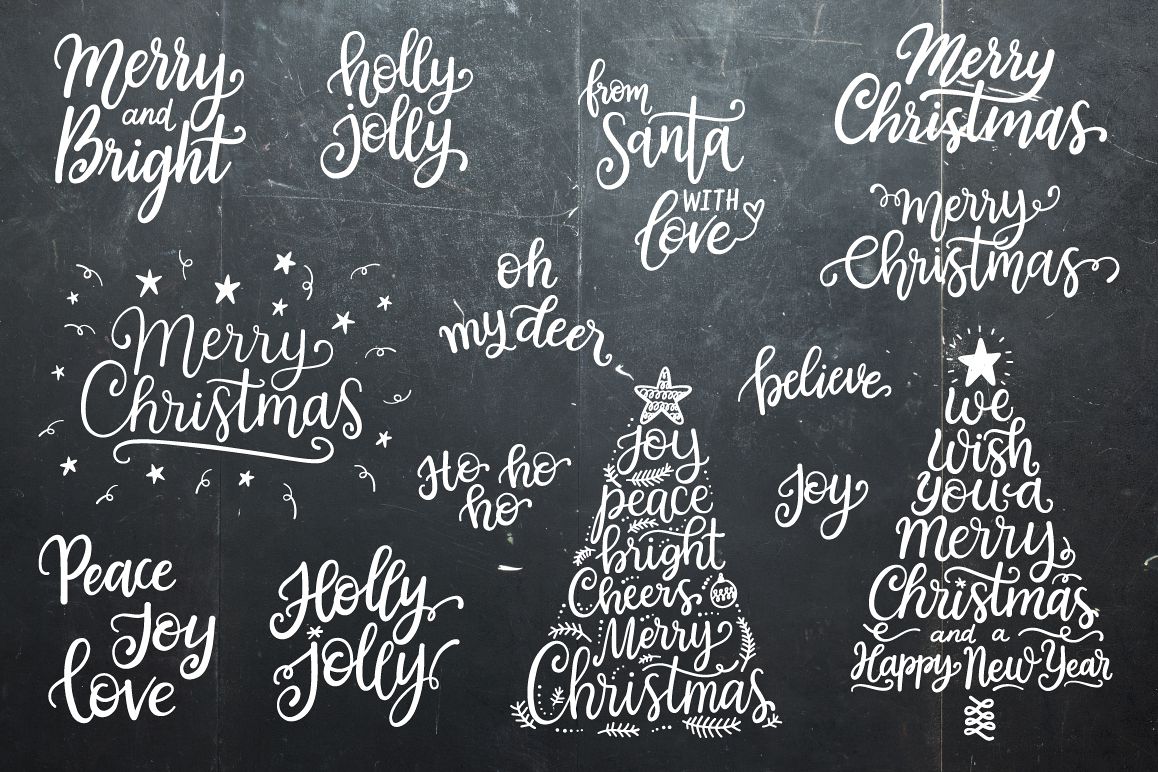 Merry
and
Bright
holly
jolly
from
Santa
WITH
love
Merry
Christmas
Merry
Christmas
Merry
Christmas
oh
my deer
believe
Ho ho
ho
Joy
Peace
Joy
love
Holly
jolly
Joy
peace
bright
Cheers
Merry
Christmas
we
wish
you a
Merry
Christmas
and a
Happy New Year